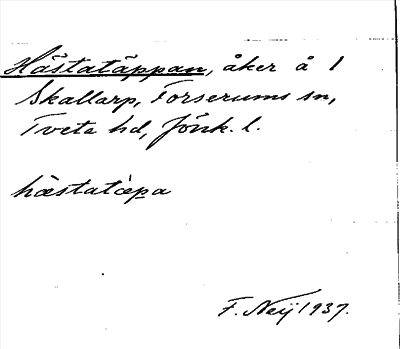 Hästatäppan, åker å 1
Skallarp, Forserums sn,
Tveta hd, Jönk. l.
hæstatæpa
F. Neij 1937.